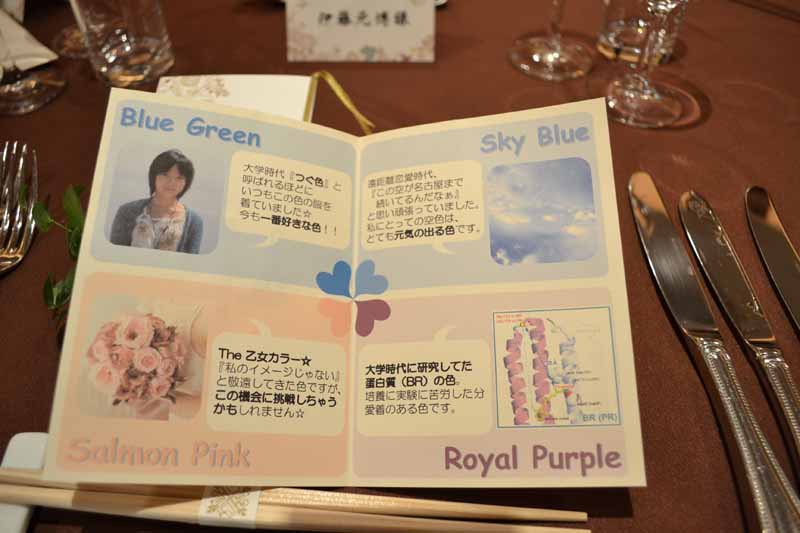 伊藤元博様
Blue Green
大学時代『つぐ色』と
呼ばれるほどに
いつもこの色の服を
着ていました☆
今も一番好きな色！！
Sky Blue
遠距離恋愛時代、
『この空が名古屋まで
続いてるんだなぁ』
と思い頑張っていました。
私にとっての空色は、
とても元気の出る色です。
The 乙女カラー☆
『私のイメージじゃない』
と敬遠してきた色ですが、
この機会に挑戦しちゃう
かもしれません☆
Salmon Pink
大学時代に研究してた
蛋白質（BR）の色。
培養に実験に苦労した分
愛着のある色です。
BR (PR)
Royal Purple